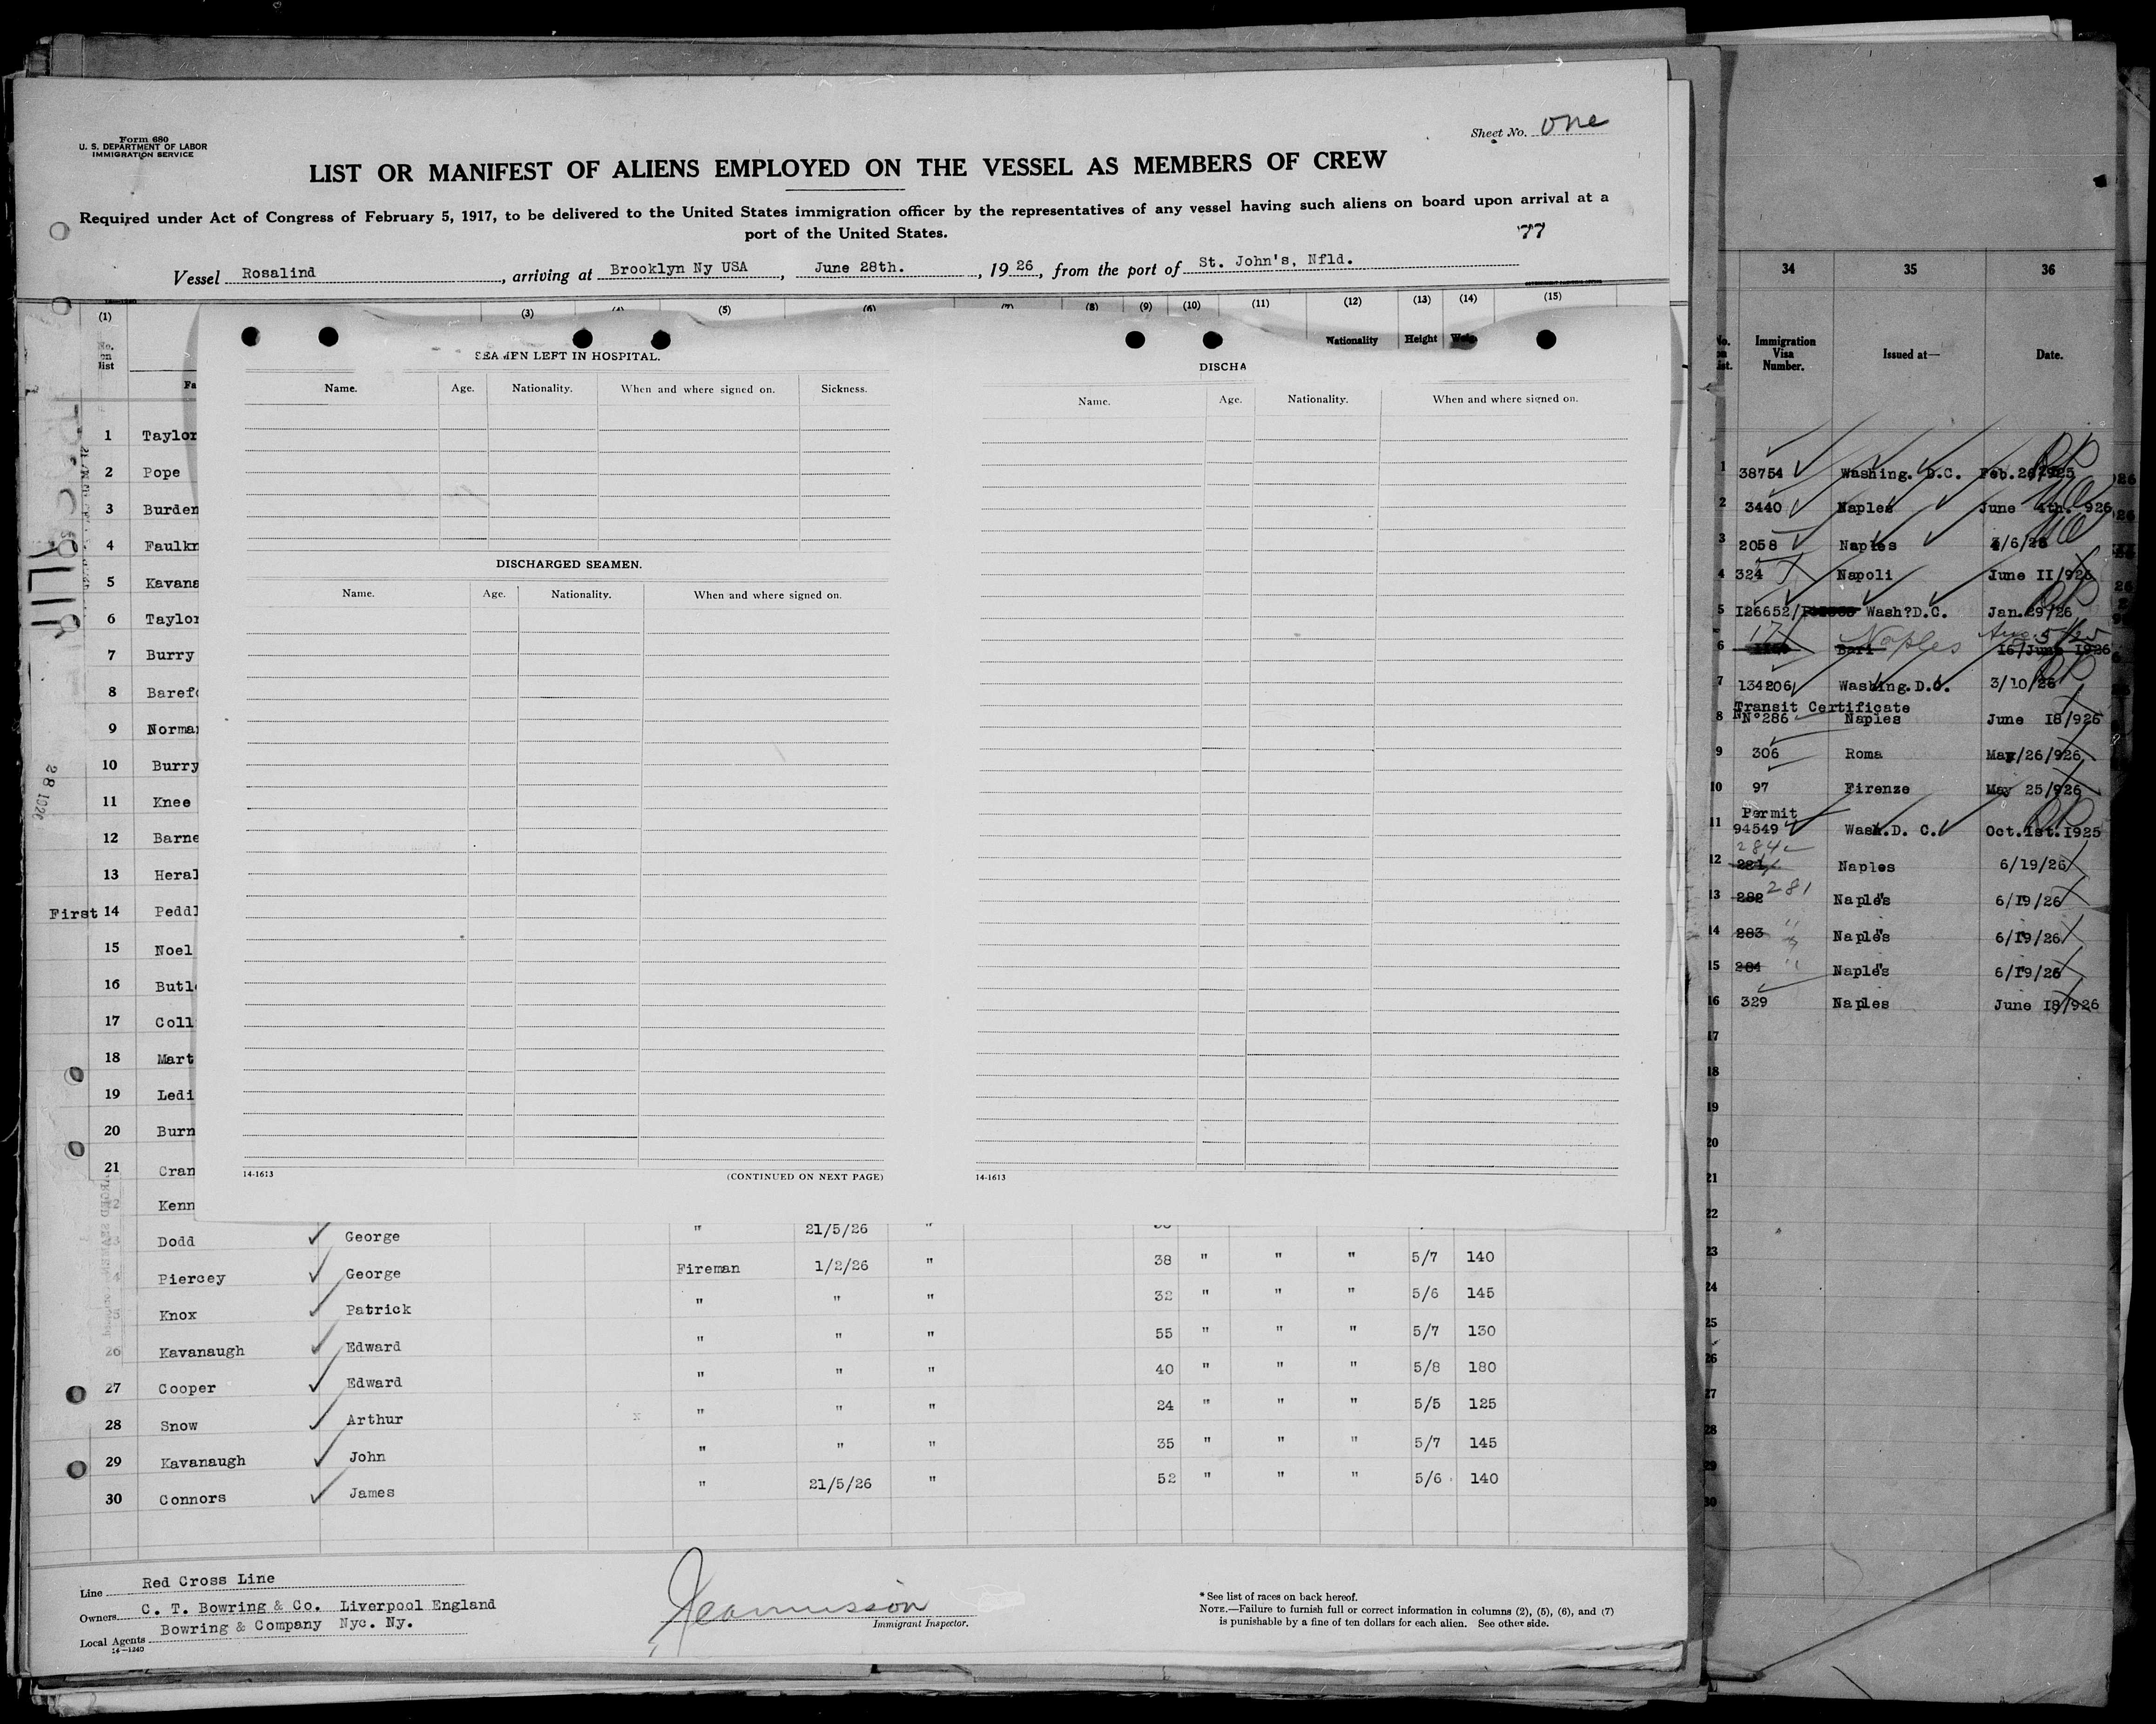 Form 680
U. S. DEPARTMENT OF LABOR
IMMIGRATION SERVICE
Sheet No. one
LIST OR MANIFEST OF ALIENS EMPLOYED ON THE VESSEL AS MEMBERS OF CREW
Required under Act of Congress of February 5, 1917, to be delivered to the United States immigration officer by the representatives of any vessel having such aliens on board upon arrival at a
port of the United States.
77
Vessel Rosalind, arriving at Brooklyn Ny USA, June 28th., 1926, from the port of St. John's, Nfld.
(1) (3) (5) (8) (9) (10) (11) (12) (13) (14) (15)
No. on list
Nationality Height
SEAMEN LEFT IN HOSPITAL.
Name. Age. Nationality. When and where signed on. Sickness.
DISCHARGED SEAMEN.
Name. Age. Nationality. When and where signed on.
14-1613 (CONTINUED ON NEXT PAGE)
DISCHA
Name. Age. Nationality. When and where signed on.
14-1613
1 Taylor
2 Pope
3 Burden
4 Faulkn
5 Kavana
6 Taylor
7 Burry
8 Barefo
9 Norman
10 Burry
11 Knee
12 Barne
13 Heral
First 14 Peddl
15 Noel
16 Butl
17 Coll
18 Mart
19 Ledi
20 Burn
21 Cran
Kenn
Dodd George " 21/5/26 "
Piercey George Fireman 1/2/26 " 38 " " " 5/7 140
Knox Patrick " " " 32 " " " 5/6 145
26 Kavanaugh Edward " " " 55 " " " 5/7 130
27 Cooper Edward " " " 40 " " " 5/8 180
28 Snow Arthur " " " 24 " " " 5/5 125
29 Kavanaugh John " " " 35 " " " 5/7 145
30 Connors James " 21/5/26 " 52 " " " 5/6 140
Line Red Cross Line
Owners C. T. Bowring & Co. Liverpool England
Local Agents Bowring & Company Nyc. Ny.
14-1240
Immigrant Inspector.
* See list of races on back hereof.
NOTE.—Failure to furnish full or correct information in columns (2), (5), (6), and (7)
is punishable by a fine of ten dollars for each alien. See other side.
28 1926
34 35 36
Immigration Visa Number. Issued at— Date.
1 38754 Washing. D.C. Feb.
2 3440 Naples June 4th. 926
3 2058 Naples
4 324 Napoli June II/926
5 I26652/ Wash?D.C. Jan.29/26
6 Bari Naples Aug. 5/25 16/June 1926
7 134206 Washing.D.C. 3/10/26
Transit Certificate
8 N°286 Naples June I8/926
9 306 Roma May/26/926
10 97 Firenze May 25/926
Permit
11 94549 Wash.D. C. Oct.1st.1925
284
12 281 Naples 6/19/26
13 282 281 Naples 6/19/26
14 283 " Naples 6/19/26
15 284 " Naples 6/19/26
16 329 Naples June I8/926
17
18
19
20
21
22
23
24
25
26
27
28
29
30